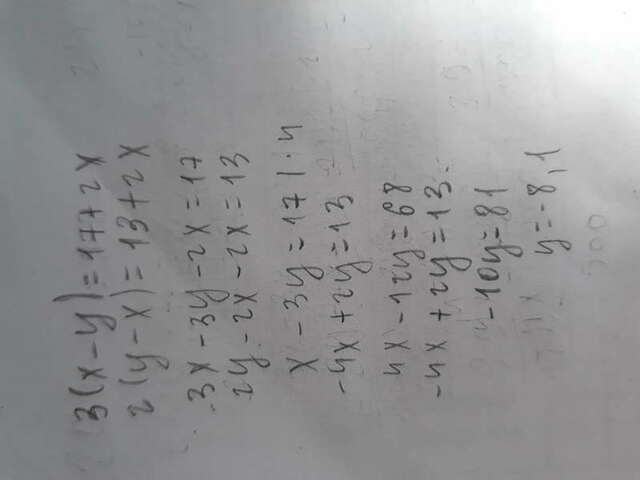 3(x-y)=17+2x
2(y-x)=13+2x
3x-3y-2x=17
2y-2x-2x=13
x-3y=17 |·4
-4x+2y=13
4x-12y=68
-4x+2y=13
-10y=81
y=-8,1